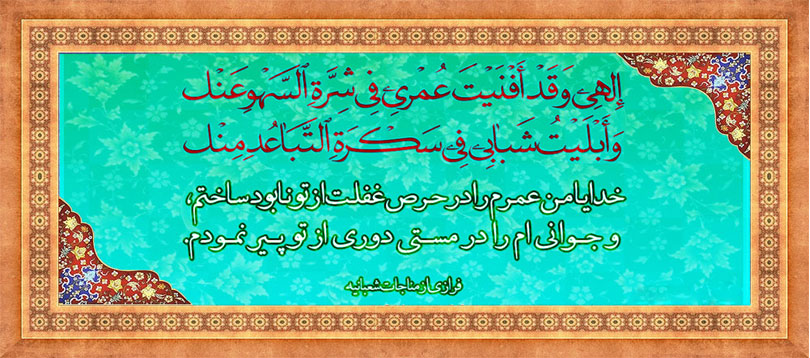 إِلهِي وَقَدْ أَفْنَيْتُ عُمْرِي فِي شِرَّةِ السَّهْوِ عَنْكَ
وَأَبْلَيْتُ شَبَابِي فِي سَكْرَةِ التَّبَاعُدِ مِنْكَ
خدایا من عمرم را در حرص غفلت از تو نابود ساختم،
و جوانی ام را در مستی دوری از تو پیر نمودم.
فرازی از مناجات شعبانیه